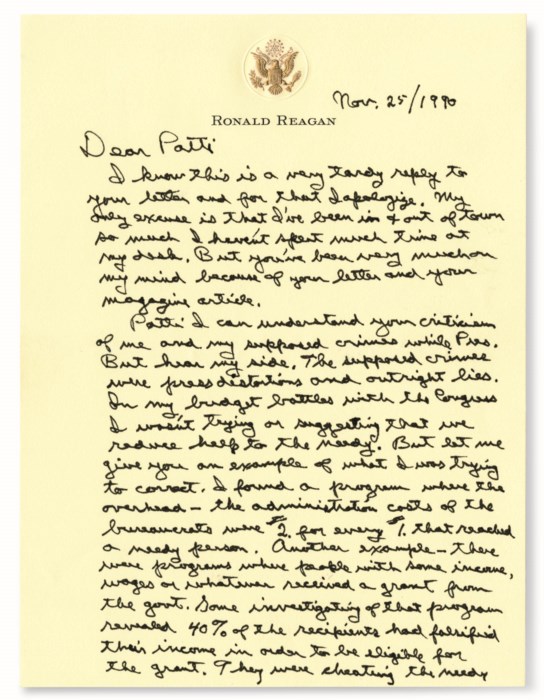 Nov. 25/1990
RONALD REAGAN
Dear Patti
I know this is a very tardy reply to
your letter and for that I apologize. My
only excuse is that I've been in & out of town
so much I haven't spent much time at
my desk. But you've been very much on
my mind because of your letter and your
magazine article.
Patti I can understand your criticism
of me and my supposed crimes while Pres.
But hear my side. The supposed crimes
were press distortions and outright lies.
In my budget battles with the Congress
I wasn't trying or suggesting that we
reduce help to the needy. But let me
give you an example of what I was trying
to correct. I found a program where the
overhead - the administration costs of the
bureaucrats were $2. for every $1. that reached
a needy person. Another example - there
were programs where people with some income,
wages or whatever received a grant from
the govt. Some investigating of that program
revealed 40% of the recipients had falsified
their income in order to be eligible for
the grant. They were cheating the needy